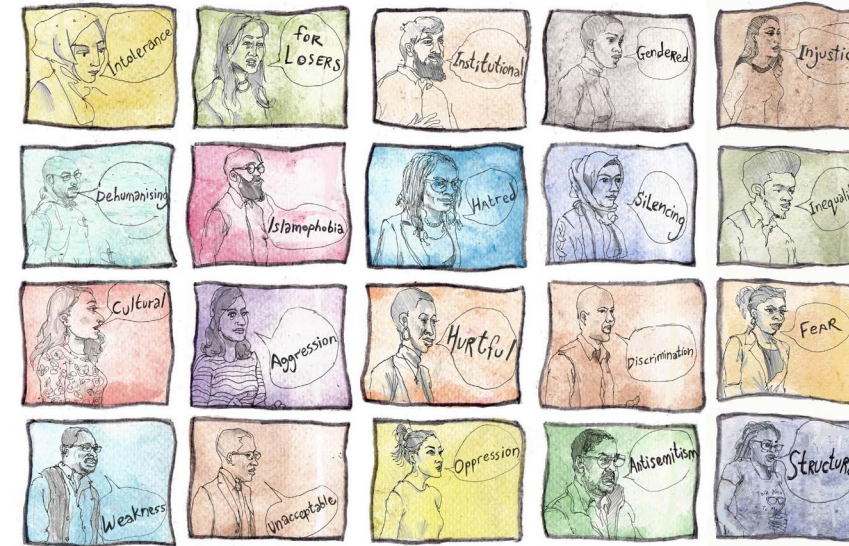 Intolerance
for
LOSERS
Institutional
Gendered
Injustic
Dehumanising
Islamophobia
Hatred
Silencing
Inequali
Cultural
Aggression
Hurtful
Discrimination
FEAR
Weakness
Unacceptable
Oppression
Antisemitism
Structur